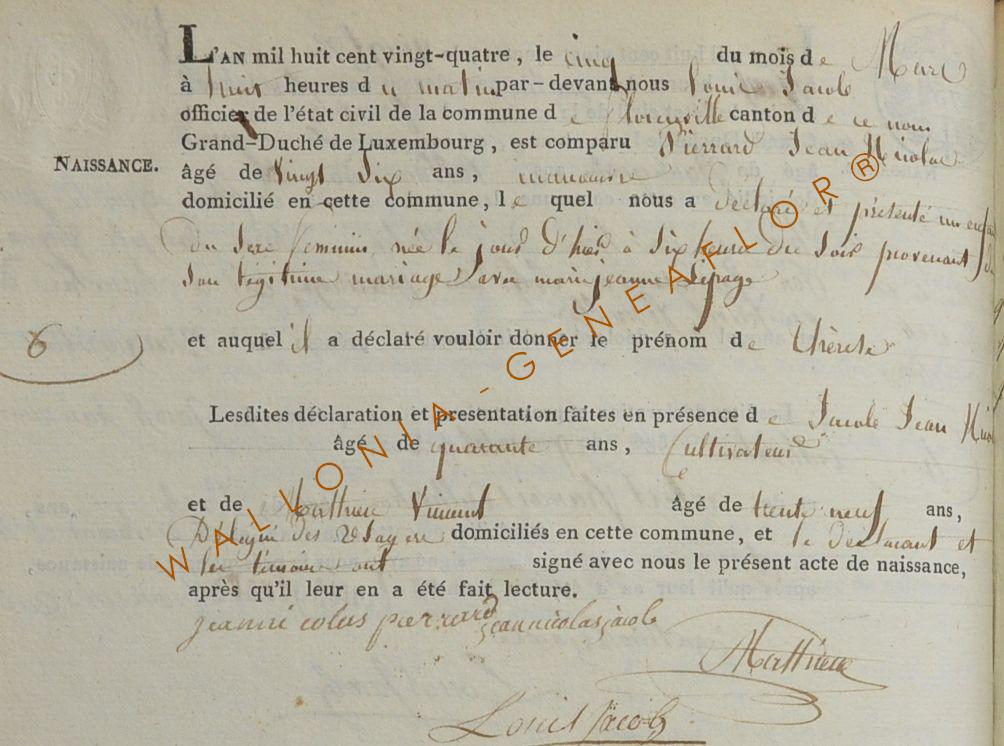 L'AN mil huit cent vingt-quatre, le cinq du mois de Mars
à huit heures du matin par-devant nous Louis Jacob
officier de l'état civil de la commune de canton de ce nom
Grand-Duché de Luxembourg, est comparu Pierrard Jean Nicolas
NAISSANCE.
âgé de vingt six ans, manœuvre
domicilié en cette commune, le quel nous a déclaré et présenté un enfant
du sexe feminin née le jour d'hier à six heures du soir provenant de
son légitime mariage avec marie jeanne Lepage
6
et auquel il a déclaré vouloir donner le prénom de thérèse
Lesdites déclaration et présentation faites en présence de Jacob Jean
âgé de quarante ans, Cultivateur
et de Matthieu Vincent âgé de trente neuf ans,
domiciliés en cette commune, et le déclarant et
les témoins ont signé avec nous le présent acte de naissance,
après qu'il leur en a été fait lecture.
jeanni colas pierrard jean nicolas jacob
Matthieu
Louis Jacob
WALLONIA-GENEAFLOR®